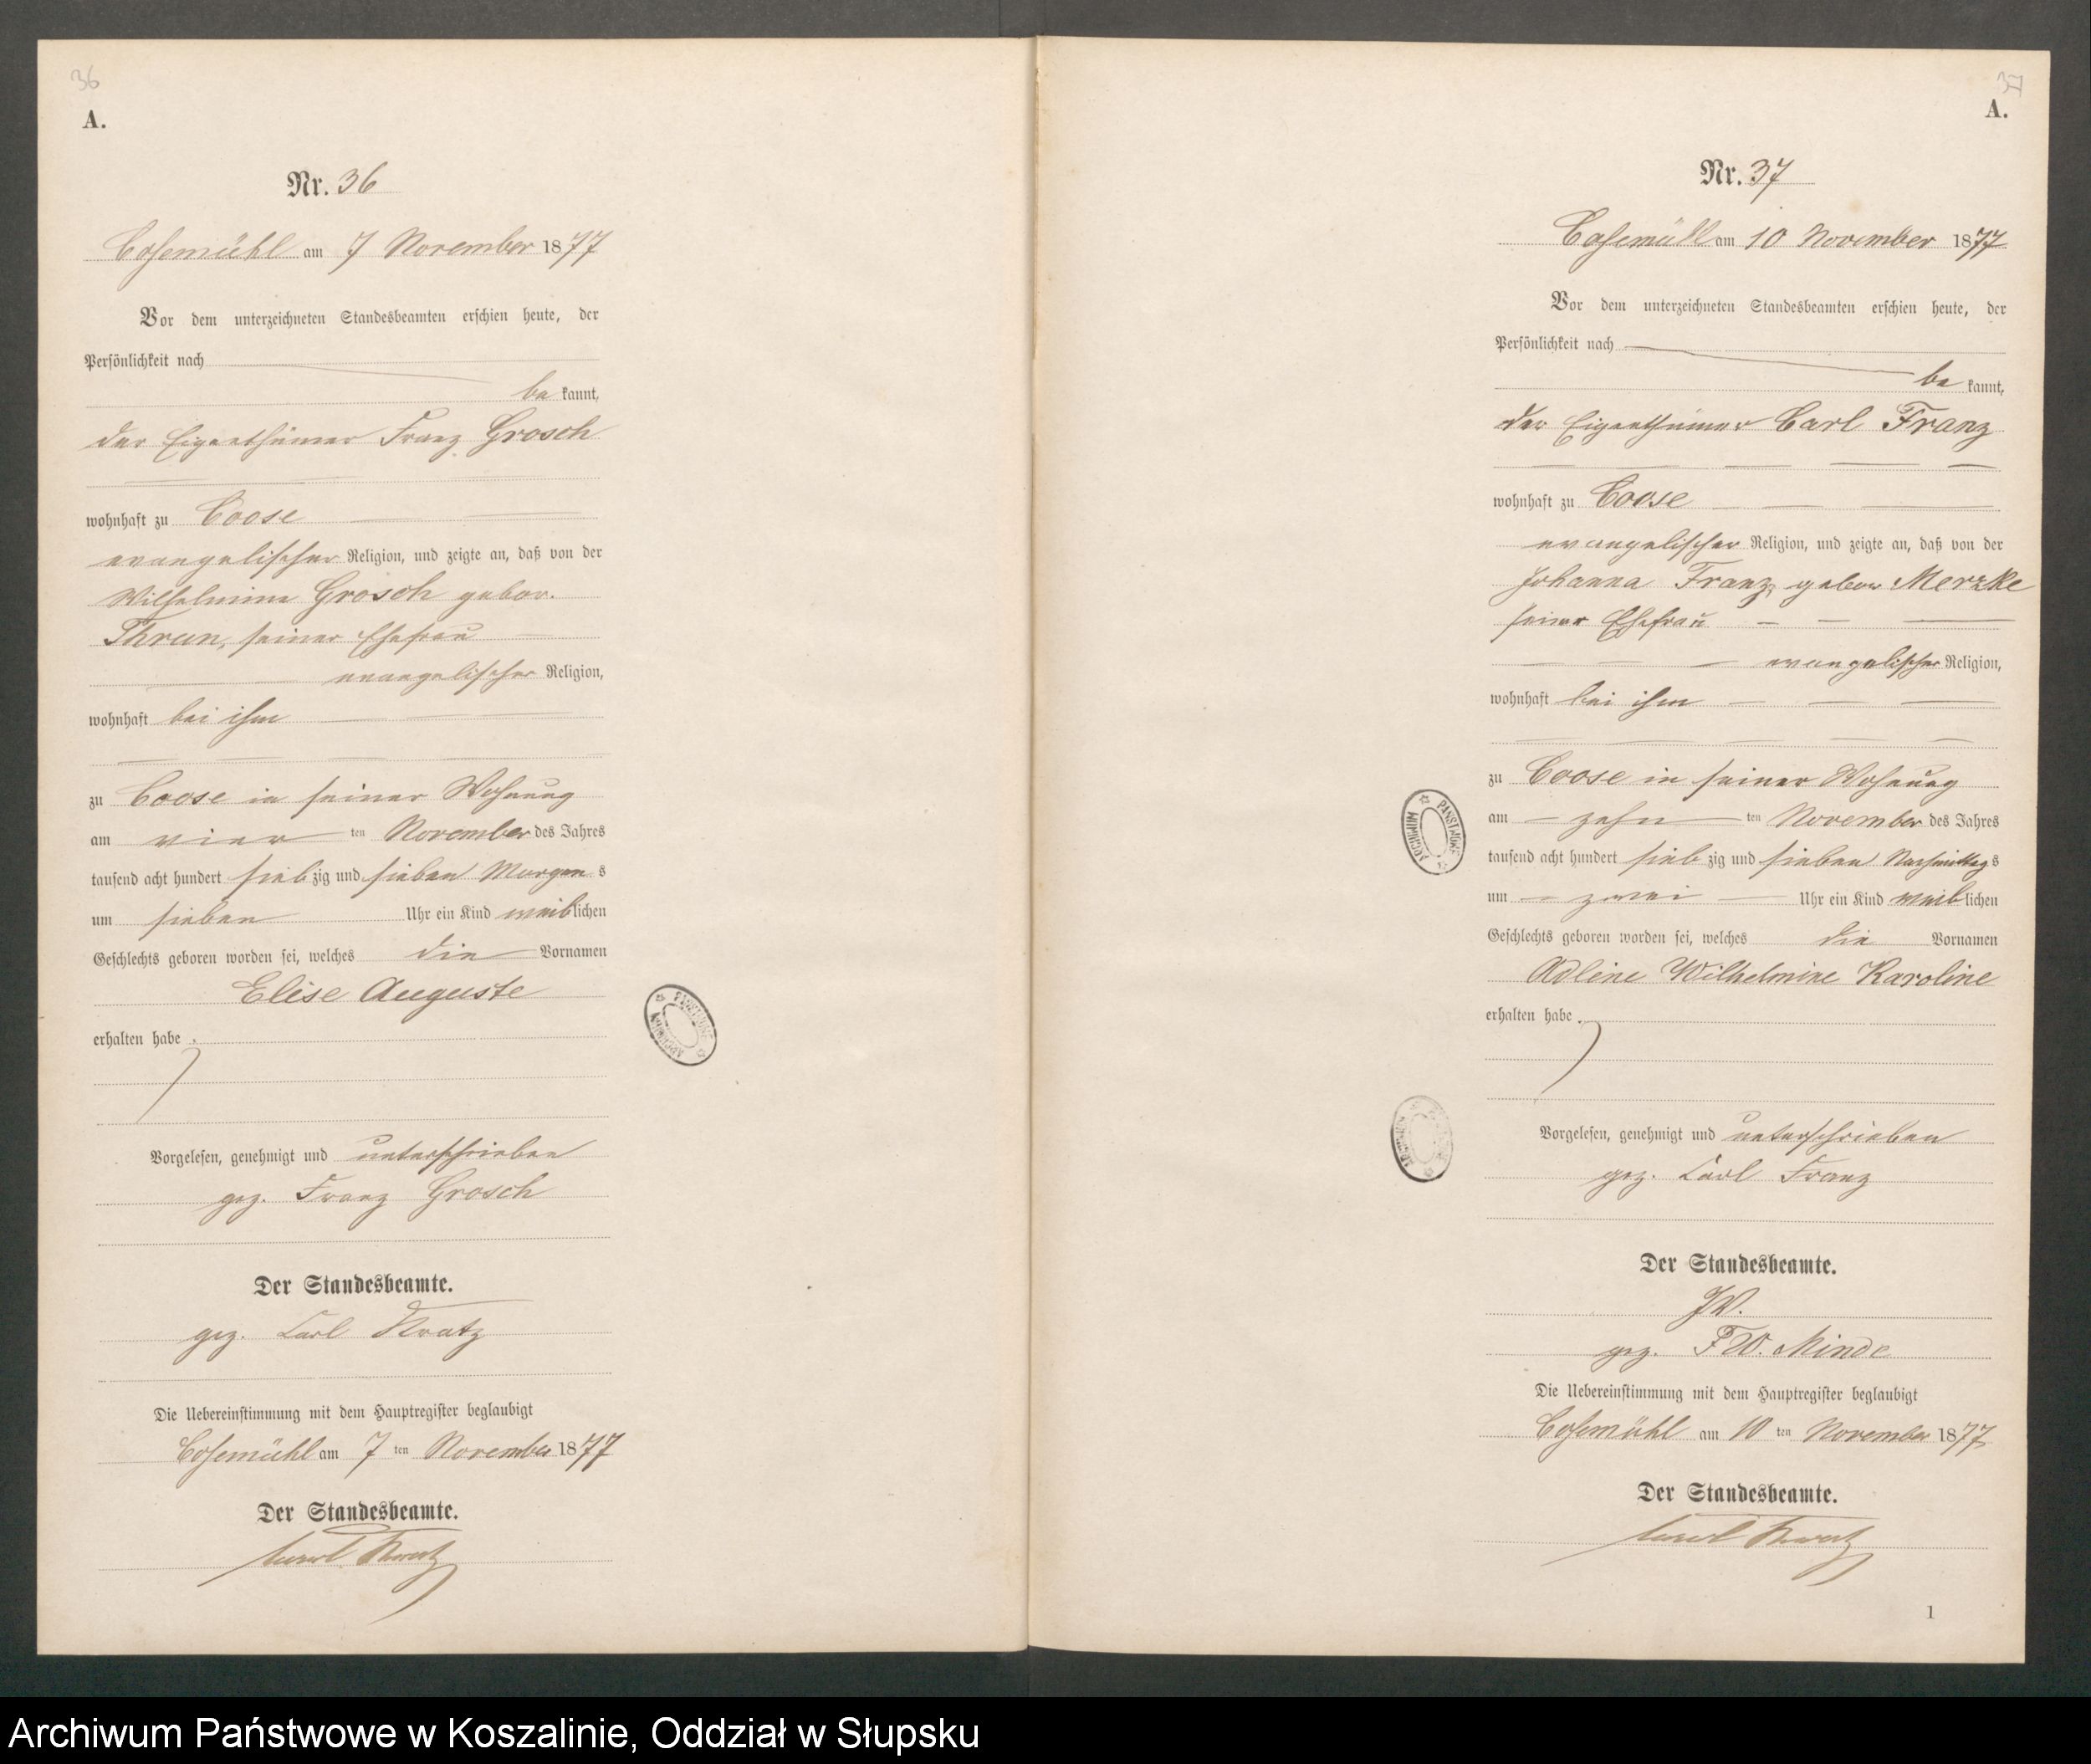 36
A.
Nr. 36
Cosemühl am 7 November 1877
Vor dem unterzeichneten Standesbeamten erschien heute, der
Persönlichkeit nach
be kannt,
der Eigenthümer Franz Grosch
wohnhaft zu Coose
evangelischer Religion, und zeigte an, daß von der
Wilhelmine Grosch gebor.
Thrun, seiner Ehefrau
evangelischer Religion,
wohnhaft bei ihm
zu Coose in seiner Wohnung
am vier ten November des Jahres
tausend acht hundert sieb zig und sieben Morgen s
um sieben Uhr ein Kind weib lichen
Geschlechts geboren worden sei, welches die Vornamen
Elise Auguste
erhalten habe.
Vorgelesen, genehmigt und unterschrieben
gez. Franz Grosch
Der Standesbeamte.
gez. Carl
Die Uebereinstimmung mit dem Hauptregister beglaubigt
Cosemühl am 7 ten November 1877
Der Standesbeamte.
Carl
ARCHIWUM PAŃSTWOWE
37
A.
Nr. 37
Cosemühl am 10 November 1877
Vor dem unterzeichneten Standesbeamten erschien heute, der
Persönlichkeit nach
be kannt,
der Eigenthümer Carl Franz
wohnhaft zu Coose
evangelischer Religion, und zeigte an, daß von der
Johanna Franz, gebor Merzke
seiner Ehefrau
evangelischer Religion,
wohnhaft bei ihm
zu Coose in seiner Wohnung
am zehn ten November des Jahres
tausend acht hundert sieb zig und sieben Nachmittag s
um zwei Uhr ein Kind weib lichen
Geschlechts geboren worden sei, welches die Vornamen
Adline Wilhelmine Karoline
erhalten habe.
Vorgelesen, genehmigt und unterschrieben
gez. Carl Franz
Der Standesbeamte.
JV.
gez. F W. Minde
Die Uebereinstimmung mit dem Hauptregister beglaubigt
Cosemühl am 10 ten November 1877
Der Standesbeamte.
Carl
1
ARCHIWUM PAŃSTWOWE
Archiwum Państwowe w Koszalinie, Oddział w Słupsku